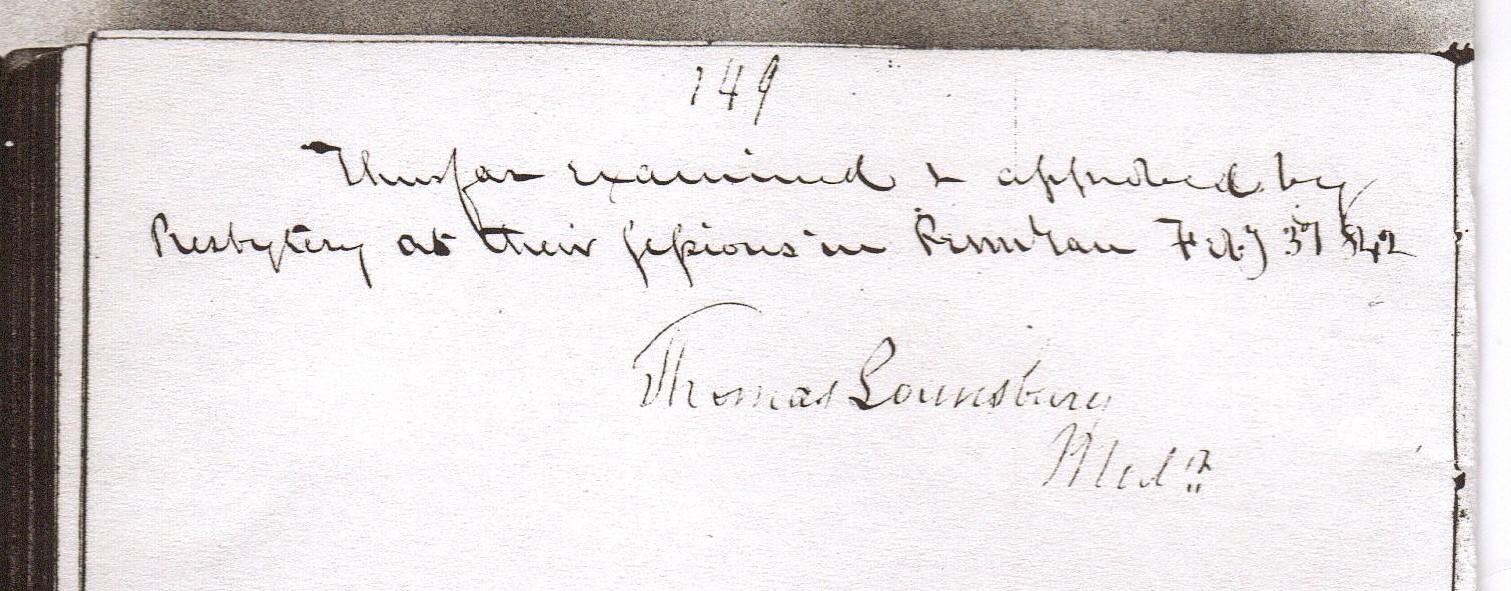 149
Thus far examined & approved by
Presbytery at their sessions in Feby 3d 1842
Thomas Lounsbury
Modr